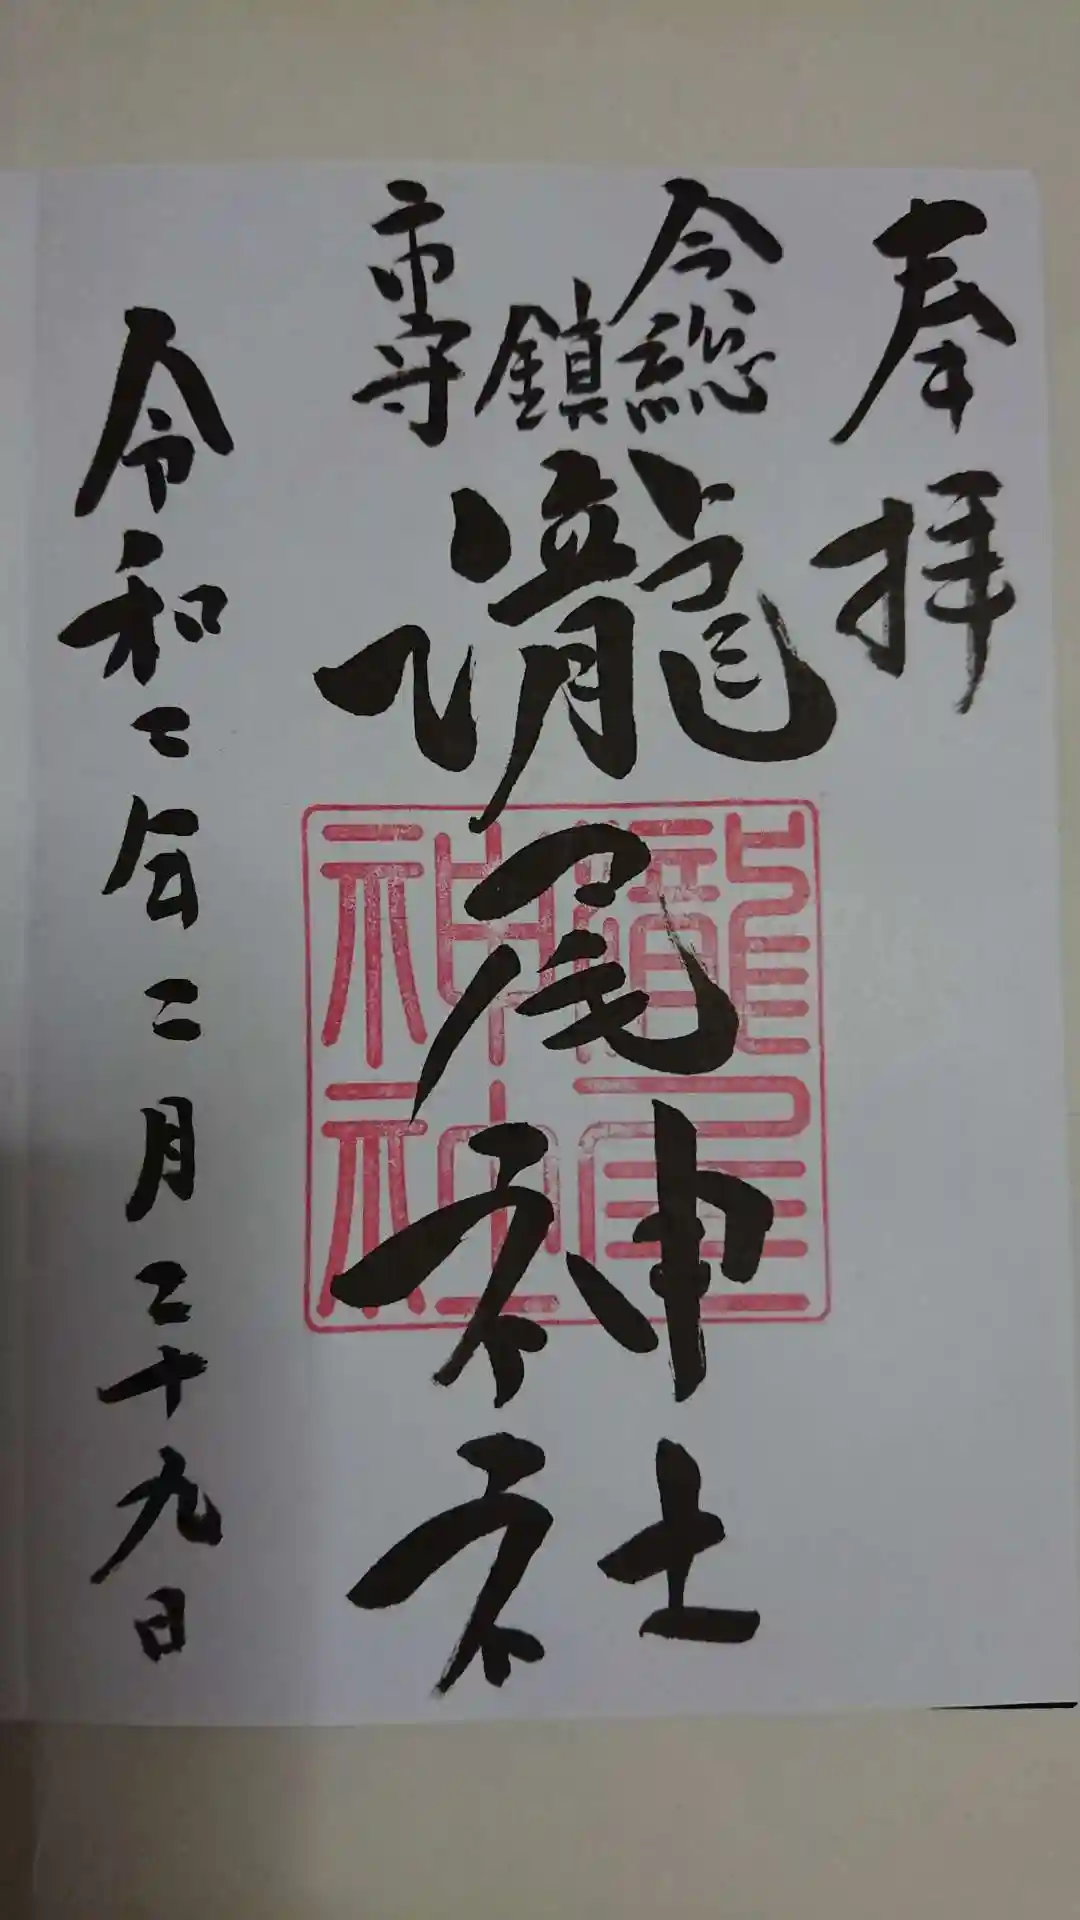 奉拝
今市
総鎮守
瀧尾神社
瀧尾神社
令和二年二月二十九日